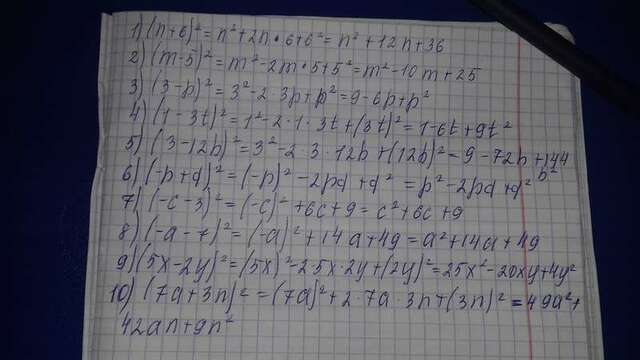 1) (n+6)² = n²+2n•6+6² = n²+12n+36
2) (m-5)² = m²-2m•5+5² = m²-10m+25
3) (3-p)² = 3²-2·3p+p² = 9-6p+p²
4) (1-3t)² = 1²-2·1·3t+(3t)² = 1-6t+9t²
5) (3-12b)² = 3²-2·3·12b+(12b)² = 9-72b+144
b²
6) (-p+d)² = (-p)²-2pd+d² = p²-2pd+d²
7) (-c-3)² = (-c)²+6c+9 = c²+6c+9
8) (-a-7)² = (-a)²+14a+49 = a²+14a+49
9) (5x-2y)² = (5x)²-2·5x·2y+(2y)² = 25x²-20xy+4y²
10) (7a+3n)² = (7a)²+2·7a·3n+(3n)² = 49a²+
42an+9n²